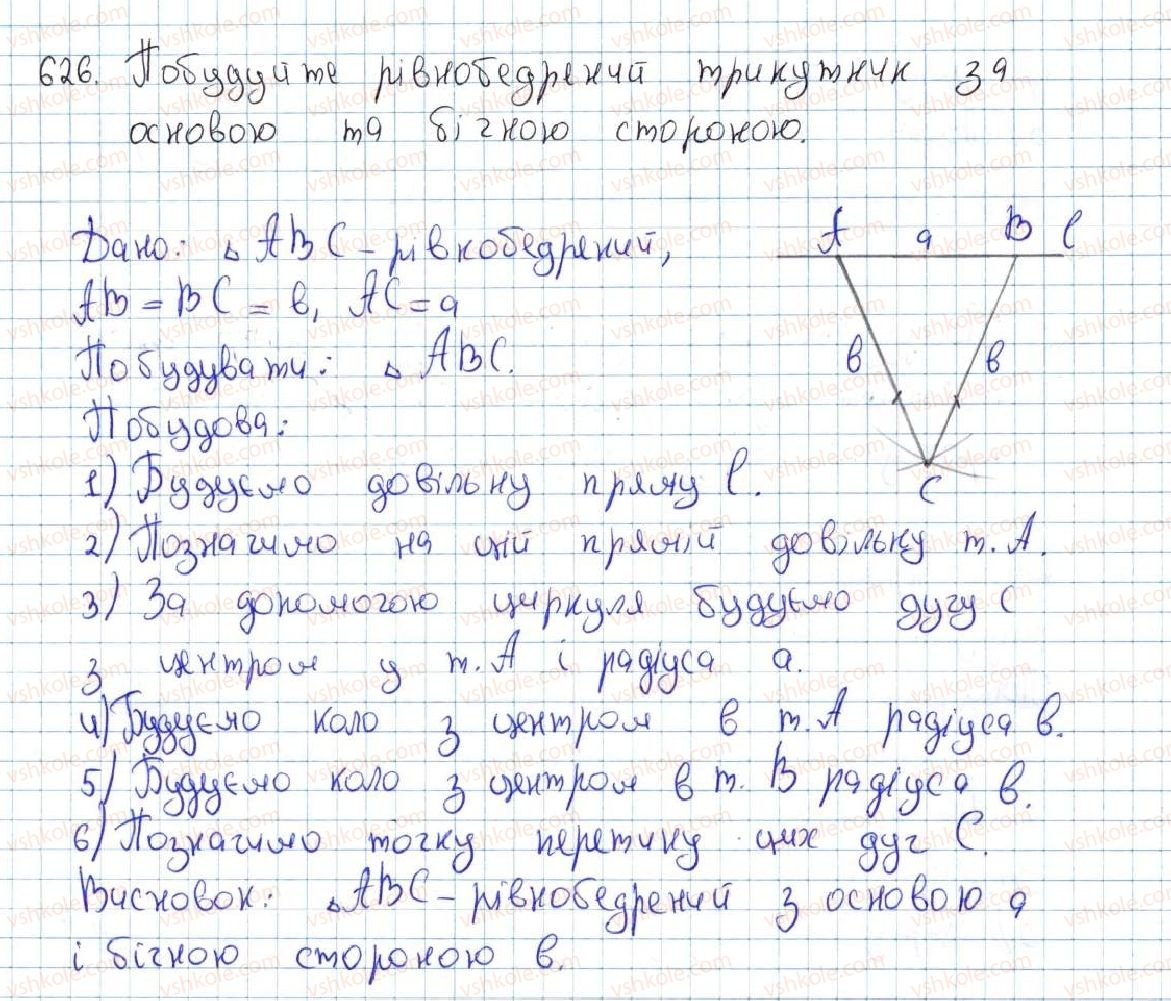 626. Побудуйте рівнобедрений трикутник за
основою та бічною стороною.
Дано: △ ABC - рівнобедрений,
AB = BC = в, AC = a
Побудувати: △ ABC.
Побудова:
1) Будуємо довільну пряму l.
2) Позначимо на цій прямій довільну т. A.
3) За допомогою циркуля будуємо дугу C
з центром у т. A і радіуса a.
4) Будуємо коло з центром в т. A радіуса в.
5) Будуємо коло з центром в т. B радіуса в.
6) Позначимо точку перетину цих дуг C.
Висновок: △ABC - рівнобедрений з основою a
і бічною стороною в.
A a B l
в в
C
vshkole.com